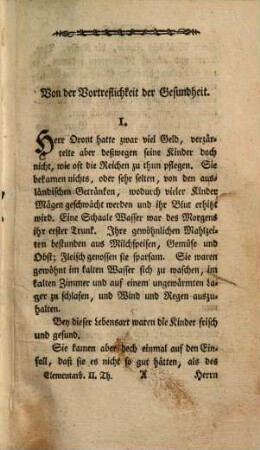 Von der Vortreflichkeit der Gesundheit.
I.
Herr Oront hatte zwar viel Geld, verzär-
telte aber deßwegen seine Kinder doch
nicht, wie oft die Reichen zu thun pflegen. Sie
bekamen nichts, oder sehr selten, von den aus-
ländischen Getränken, wodurch vieler Kinder
Mägen geschwächt werden und ihr Blut erhitzt
wird. Eine Schaale Wasser war des Morgens
ihr erster Trunk. Ihre gewöhnlichen Mahlzei-
ten bestunden aus Milchspeisen, Gemüse und
Obst; Fleisch genossen sie sparsam. Sie waren
gewöhnt im kalten Wasser sich zu waschen, im
kalten Zimmer und auf einem ungewärmten La-
ger zu schlafen, und Wind und Regen auszu-
halten.
Bey dieser Lebensart waren die Kinder frisch
und gesund.
Sie kamen aber doch einmal auf den Ein-
fall, daß sie es nicht so gut hätten, als des
Elementarb. II. Th. A Herrn